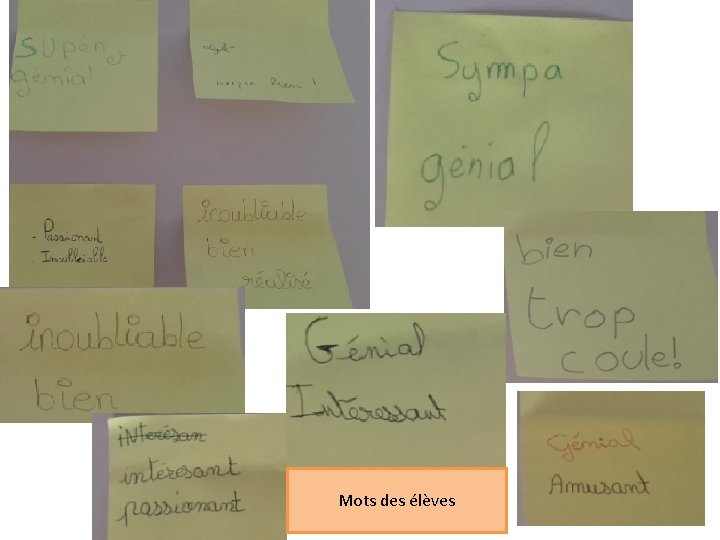 Supén et
génial
!
Sympa
génial
- Passionant
- Inoubliable
inoubliable
bien
réalisé
bien
trop
coule!
inoubliable
bien
Génial
Intéressant
interésan
intéresant
passionant
Génial
Amusant
Mots des élèves